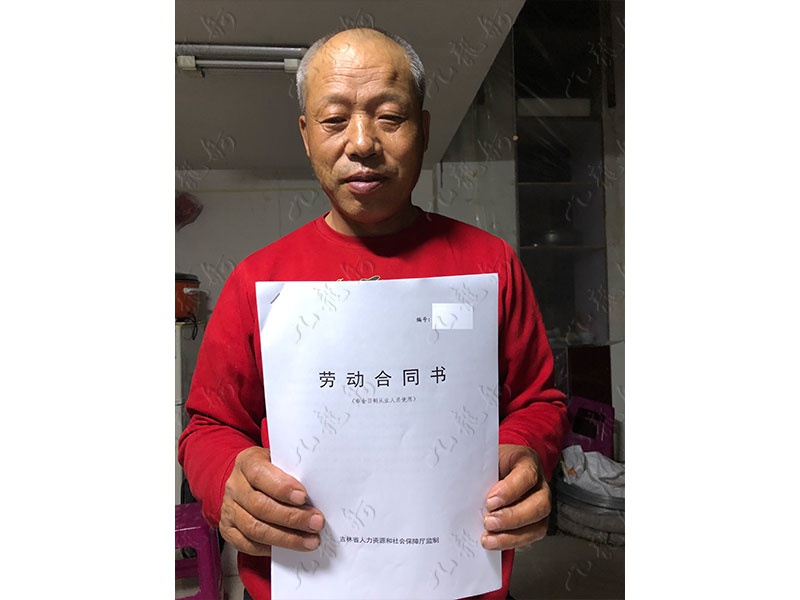 编号:
劳动合同书
(非全日制从业人员使用)
吉林省人力资源和社会保障厅监制